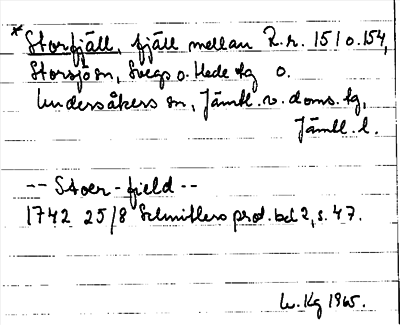 * Storfjäll, fjäll mellan R.r. 151 o. 154,
Storsjö sn, Svegs o. Hede tg o.
Undersåkers sn, Jämtl. v. doms. tg,
Jämtl. l.
-- Stoer-field --
1742 25/8 Schnitlers prot. bd 2, s. 47.
Kg 1965.